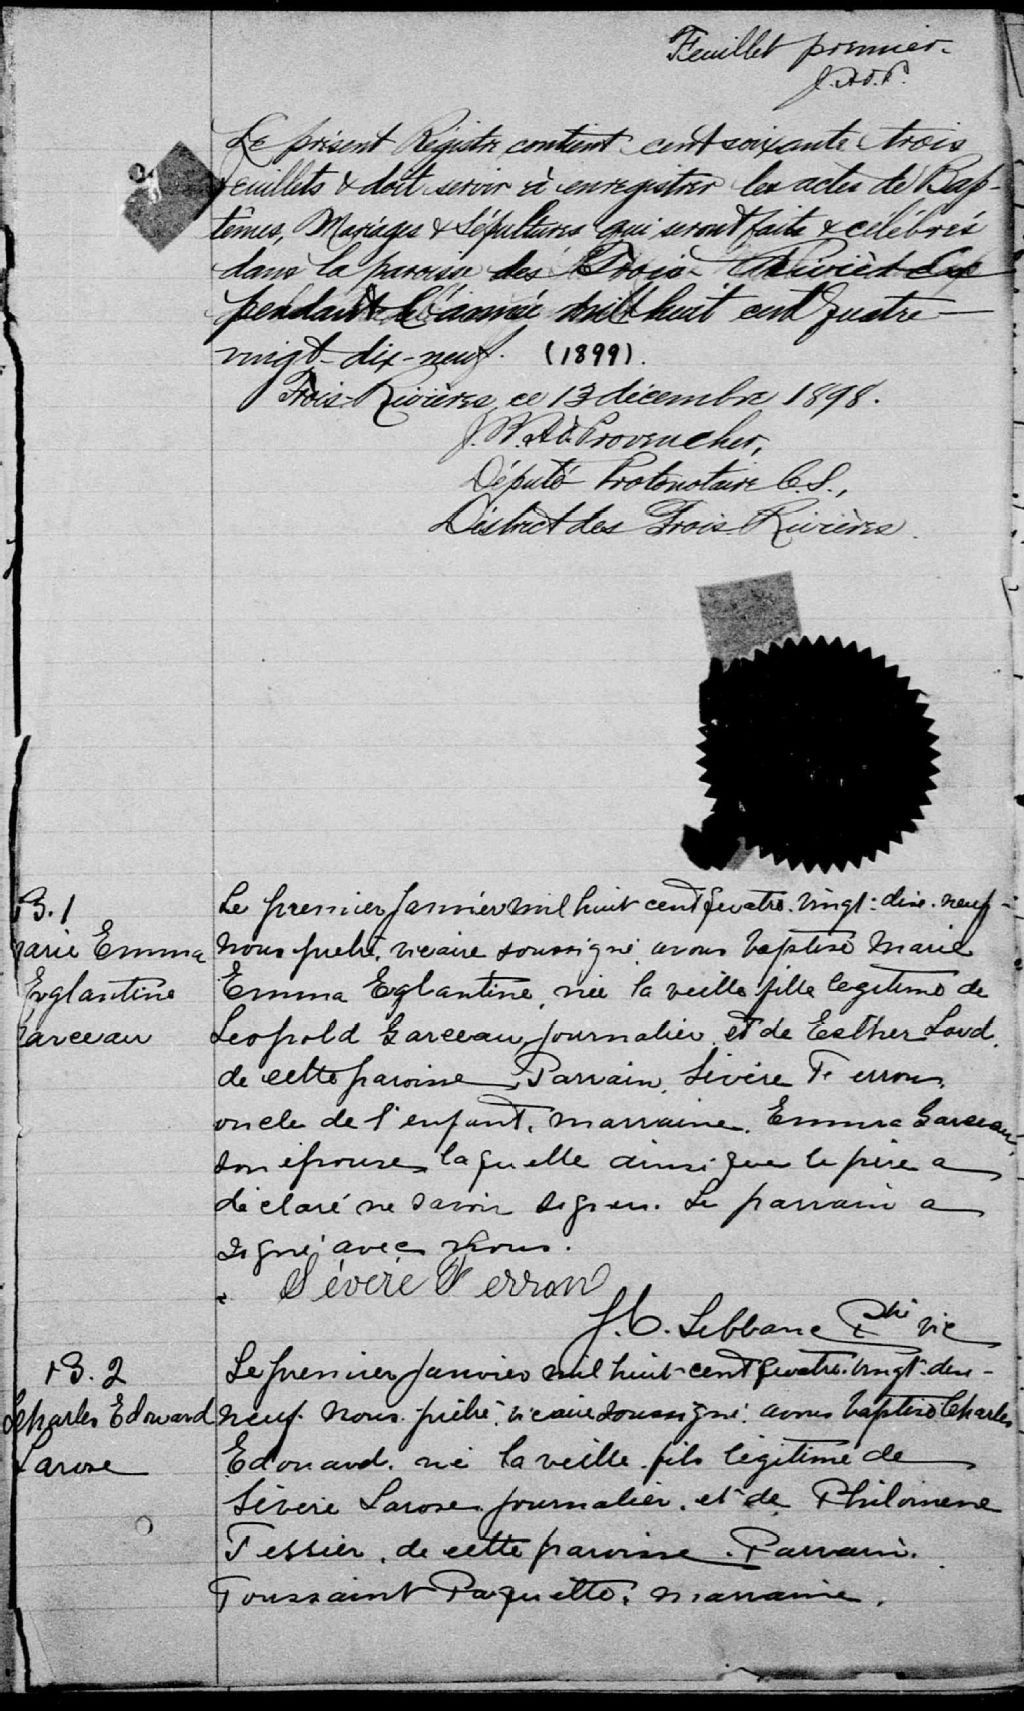 Feuillet premier.
J.A.D.P.
Le présent Régistre contient cent soixante trois
feuillets & doit servir à enregistrer les actes de Bap-
têmes, Mariages & Sépultures qui seront faits & célébrés
dans la paroisse des Trois-Rivières
pendant l'année mil huit cent quatre
vingt-dix-neuf. (1899).
Trois-Rivières, ce 13 décembre 1898.
Provencher,
Député Protonotaire C.S.,
District des Trois-Rivières.
B.1
Marie Emma
Eglantine
Garceau
Le premier Janvier mil huit cent quatre-vingt-dix-neuf
nous prêtre, vicaire soussigné avons baptisé Marie
Emma Eglantine, née la veille fille légitime de
Leopold Garceau, journalier, et de Esther Lord,
de cette paroisse. Parrain, Sévère Ferron,
oncle de l'enfant, marraine, Emma Garceau,
son épouse, laquelle ainsi que le père a
déclaré ne savoir signer. Le parrain a
signé avec nous.
Sévère Ferron
Ptre vic
B.2
Charles Edouard
Larose
Le premier janvier mil huit-cent quatre-vingt-dix-
neuf nous prêtre, vicaire soussigné, avons baptisé Charles
Edouard, né la veille fils légitime de
Sévère Larose, journalier, et de Philomène
Tessier, de cette paroisse. Parrain,
Toussaint Paquette, marraine,